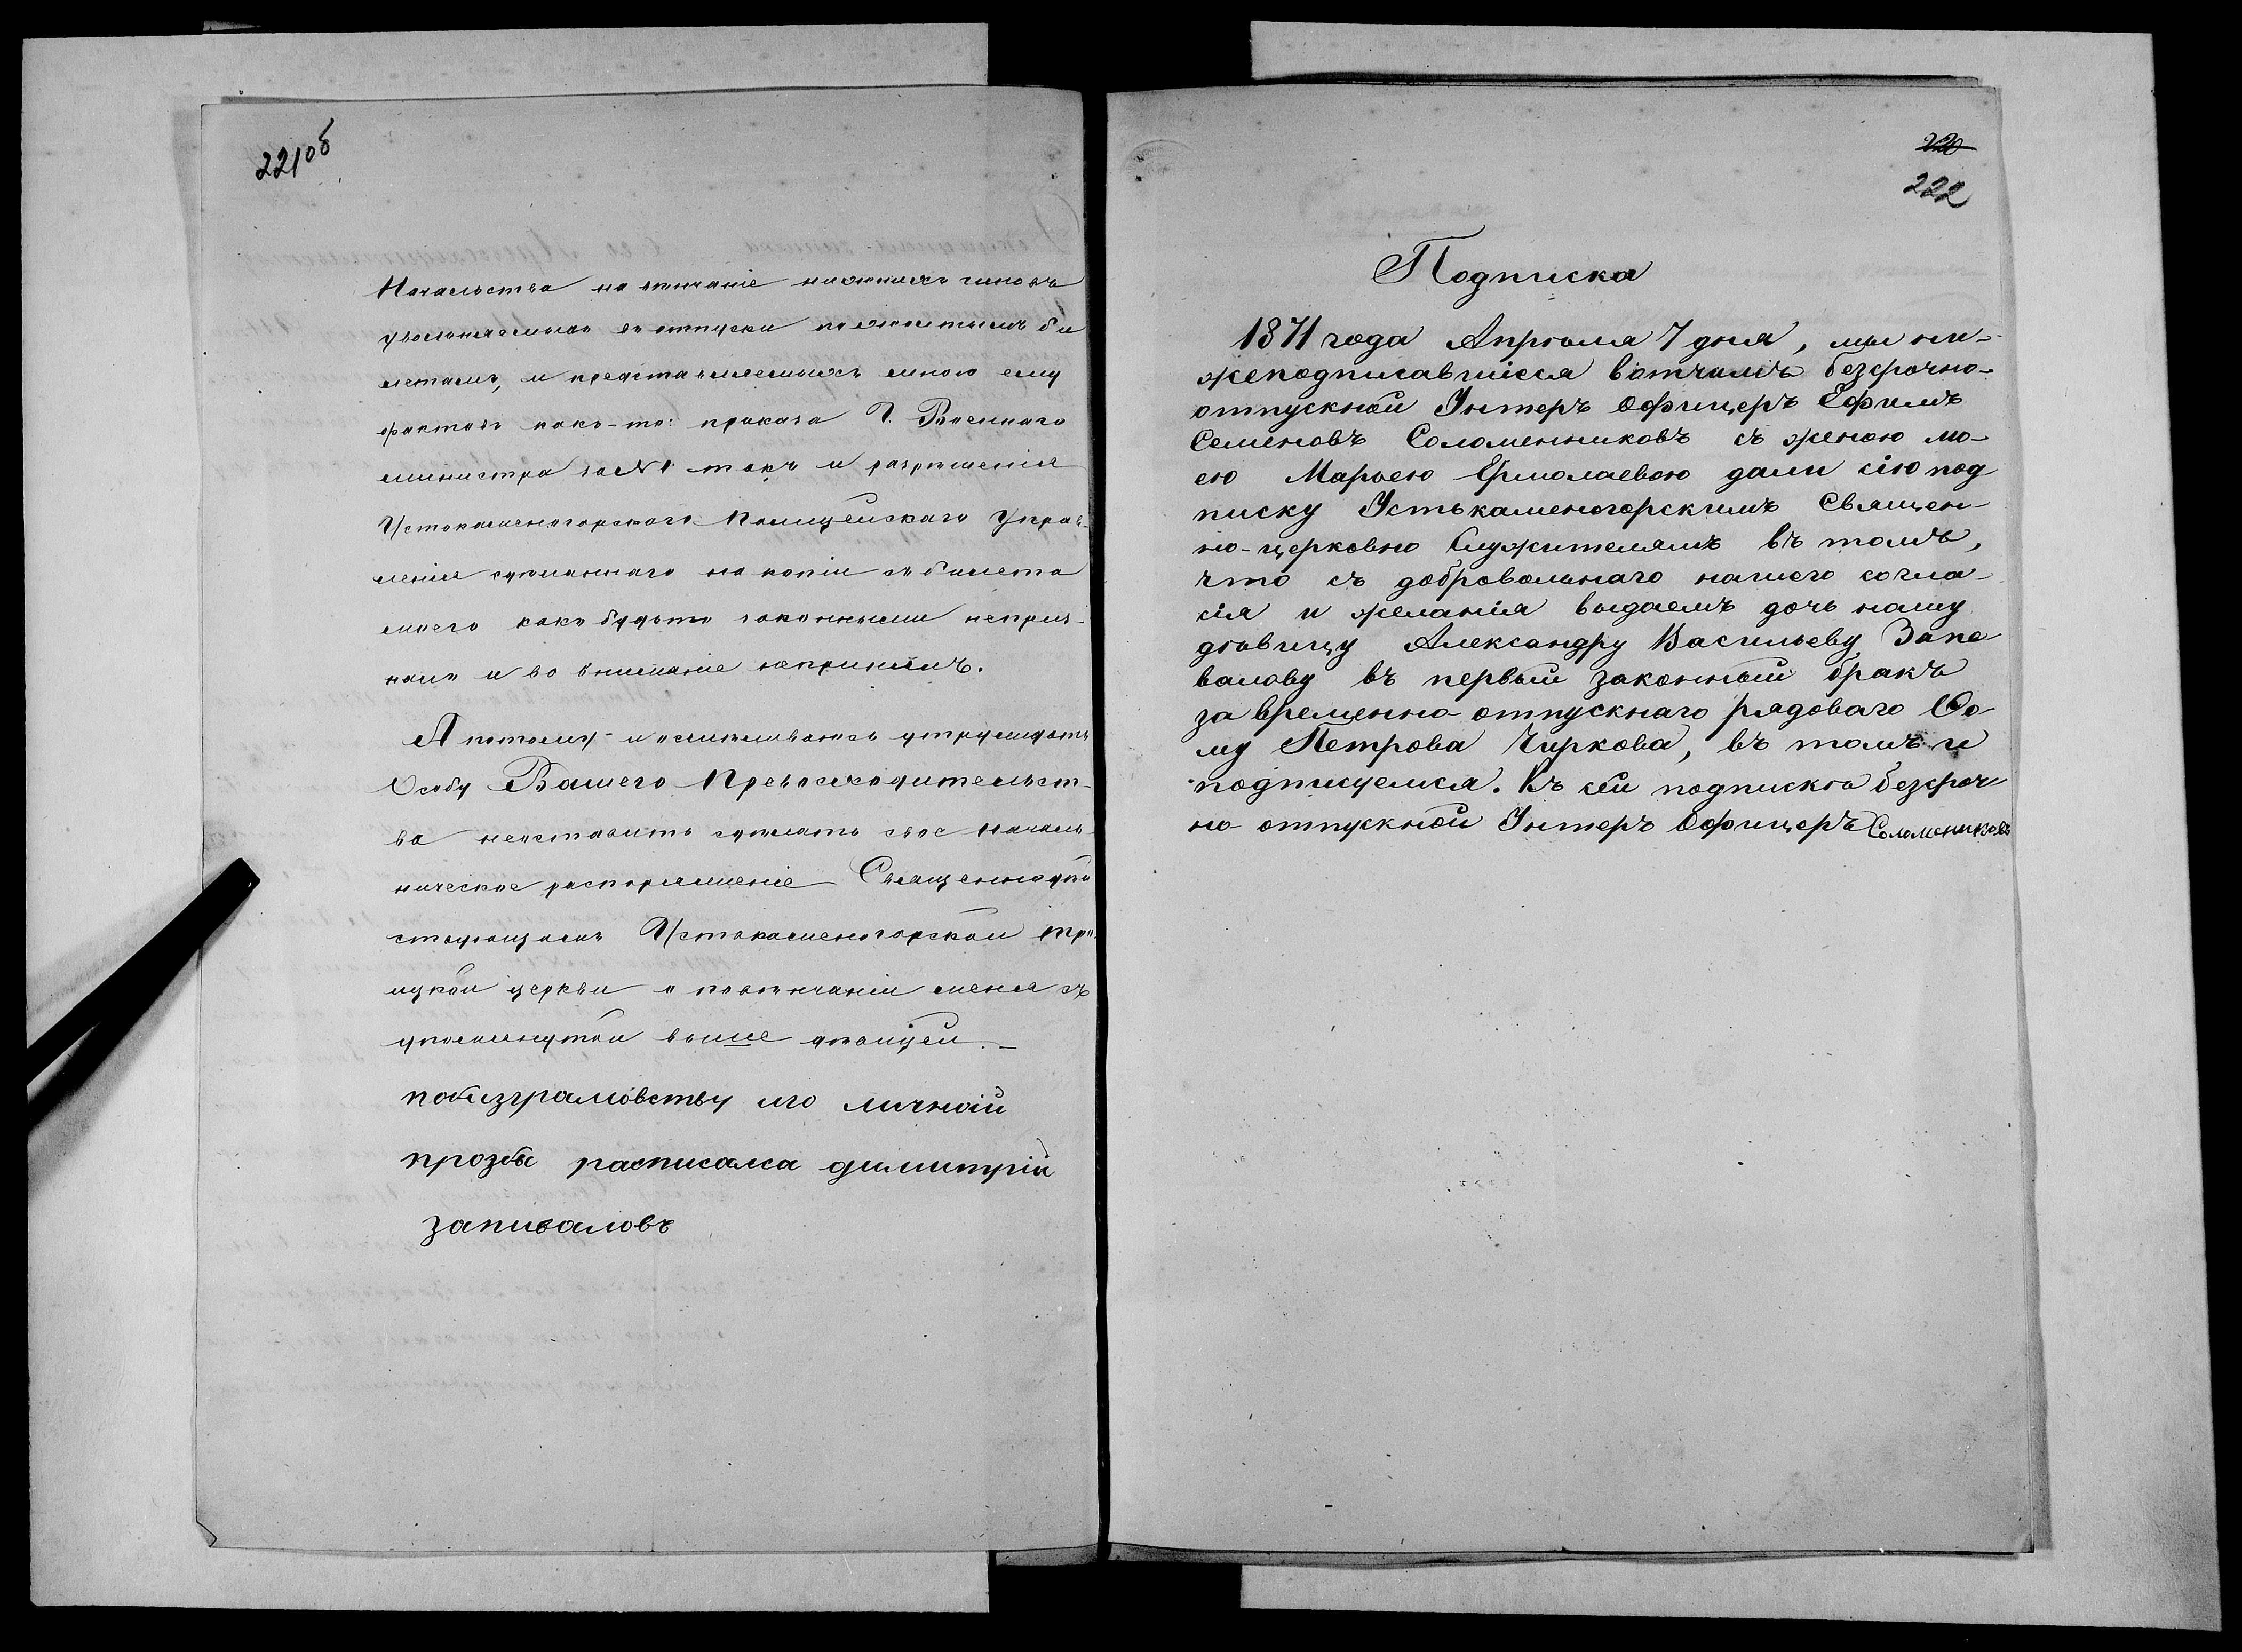 221об
Начальства на венчаніе нижнихъ чиновъ
увольняемыхъ въ отпуски по желтымъ би
летамъ, и представляемыхъ мною ему
фактовъ какъ-то: приказа Г. Военнаго
министра за № такъ и разрешенія
Устькаменогорскаго Полицейскаго Управ-
ленія сделаннаго на копіи съ билета
моего какъ будьто законными неприз-
налъ и во вниманіе непринялъ.
А потому и осмеливаюсь утруждать
Особу Вашего Превосходительст-
ва неоставить сделать свое Началь-
ническое распоряженіе Священнодей
ствующимъ Устькаменогорской Тро-
ицкой церкви о повенчаніи меня съ
упомянутой выше девицей.—
побезграмовству иго личной
прозбе расписалса димитрій
запиваловъ
220
222
Подписка
1871 года Апрѣля 7 дня, мы ни-
жеподписавшіеся вотчимъ безсрочно-
отпускной Унтеръ Офицеръ Ефимъ
Семеновъ Соломенниковъ съ женою мо-
ею Марьею Ермолаевою дали сію под
писку Устькаменогорскимъ Священ-
но-церковно Служителямъ въ томъ,
что съ добровольнаго нашего согла-
сія и желанія выдаемъ дочь нашу
дѣвицу Александру Васильеву Запе
валову въ первый законный бракъ
за временно-отпускнаго рядоваго Ѳо
му Петрова Чиркова, въ томъ и
подписуемся. Къ сей подпискѣ безсроч
но-отпускной Унтеръ Офицеръ Соломениковъ